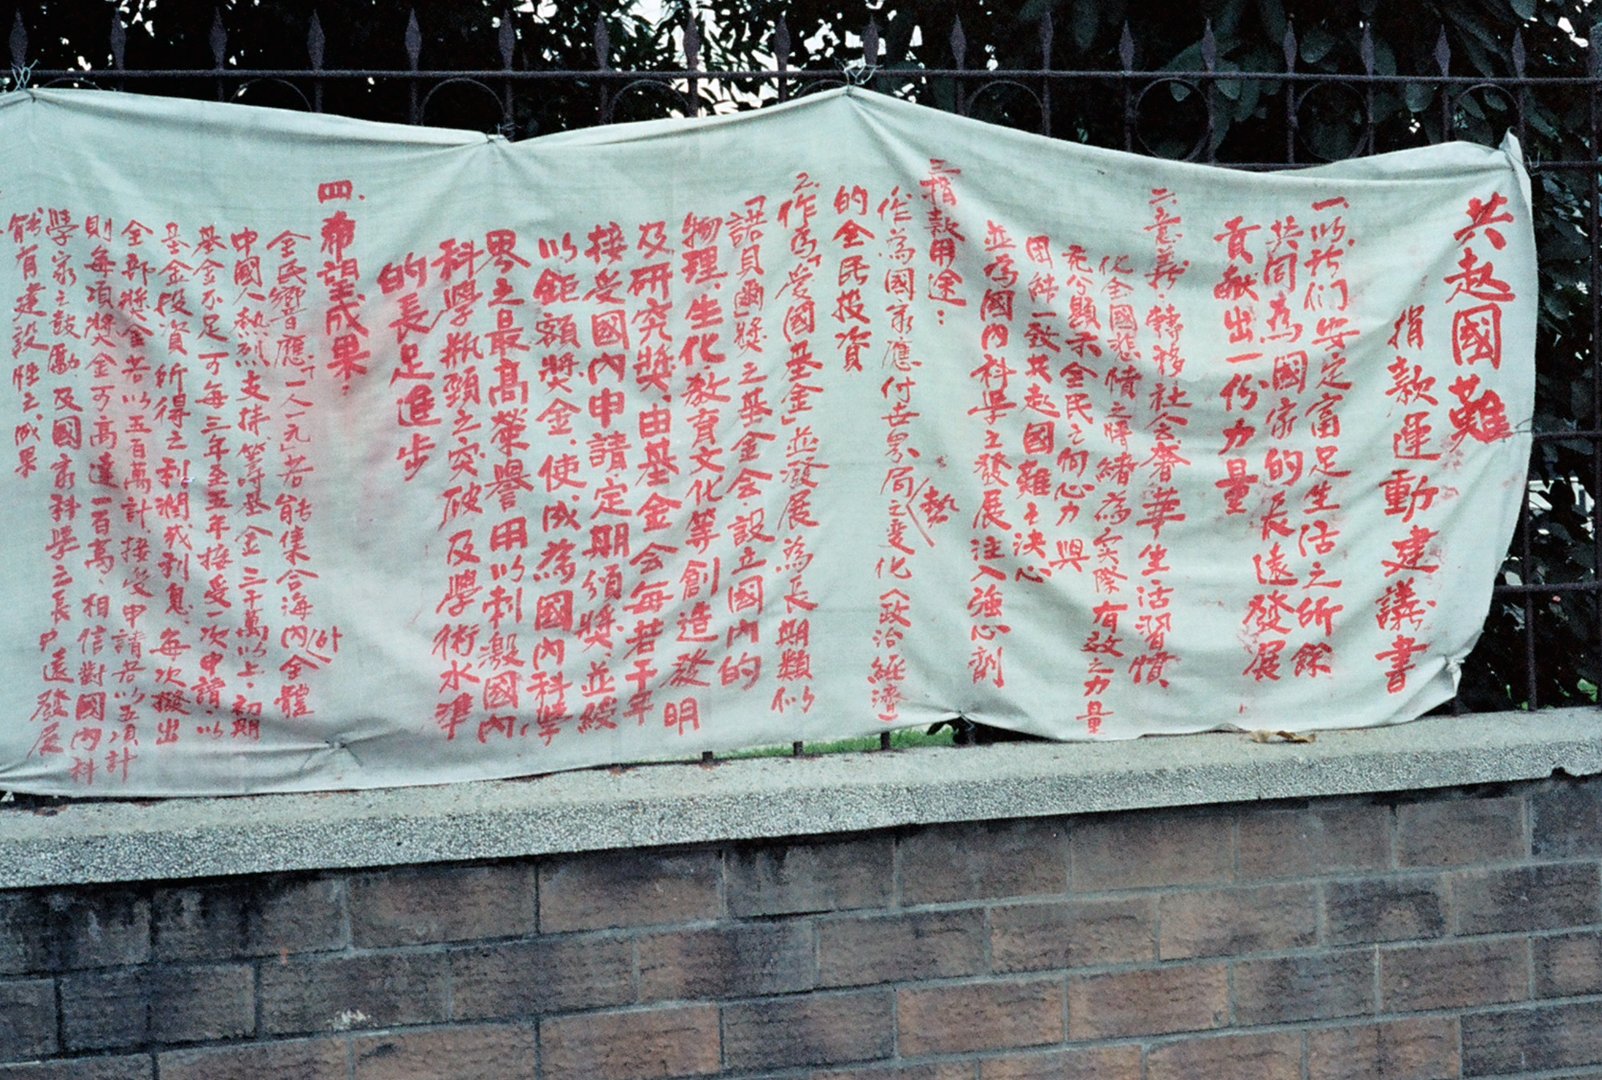 共赴國難
捐款運動建議書
一、以我們安定富足生活之所餘
共同為國家的長遠發展
貢獻出一份力量
二、意義：轉移社會奢華生活習慣
化全國悲憤之情緒為實際有效之力量
充分顯示全民之向心力與
團結一致共赴國難之決心
並為國內科學之發展注入強心劑
三、捐款用途：
作為國家應付世界局勢之變化（政治經濟）
的全民投資
2.作為「受國基金」並發展為長期類似
「諾貝爾」獎之基金会，設立國內的
物理、生化、教育文化等創造發明
及研究獎，由基金会每若干年
接受國內申請定期頒獎，並綬
以鉅額獎金、使成為國內科學
界之最高榮譽用以刺激國內
科學瓶頸之突破及學術水準
的長足進步
四、希望成果：
全民響應「一人一元」若能集合海內外全體
中國人熱烈支持，籌基金三千萬以上，初期
基金不足可每三年至五年接受一次申請以
基金投資所得之利潤或利息，每次撥出
全部獎金若以五百萬計接受申請者以五項計
則每項獎金可高達一百萬，相信對國內科
學家之鼓勵及國家科學之長戶遠發展
能有建設性之成果